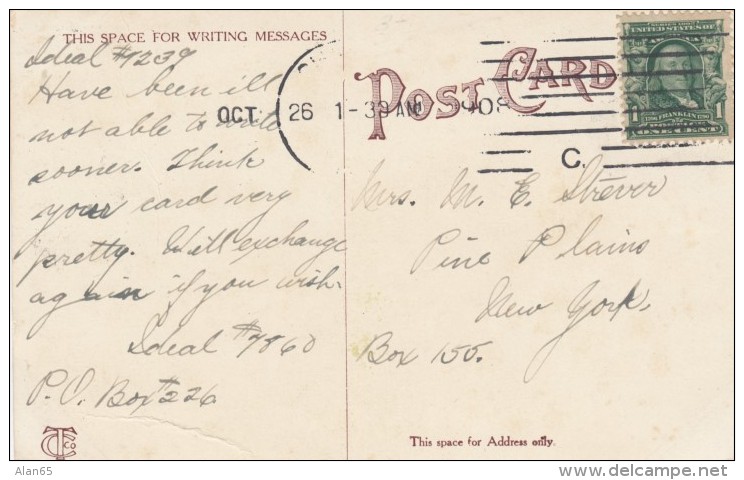 THIS SPACE FOR WRITING MESSAGES
Ideal #7239
Have been ill
not able to write
sooner. Think
your card very
pretty. Will exchange
again if you wish.
Ideal #7860
P.O. Box #226
TCCO
OCT 26 1-33 AM 1908
C.
POST CARD
SERIES 1902
UNITED STATES OF AMERICA
1 FRANKLIN 1
ONE CENT
Mrs. M. E. Strever
Pine Plains
New York.
Box 155.
This space for Address only.
Alan65
delcampe.net